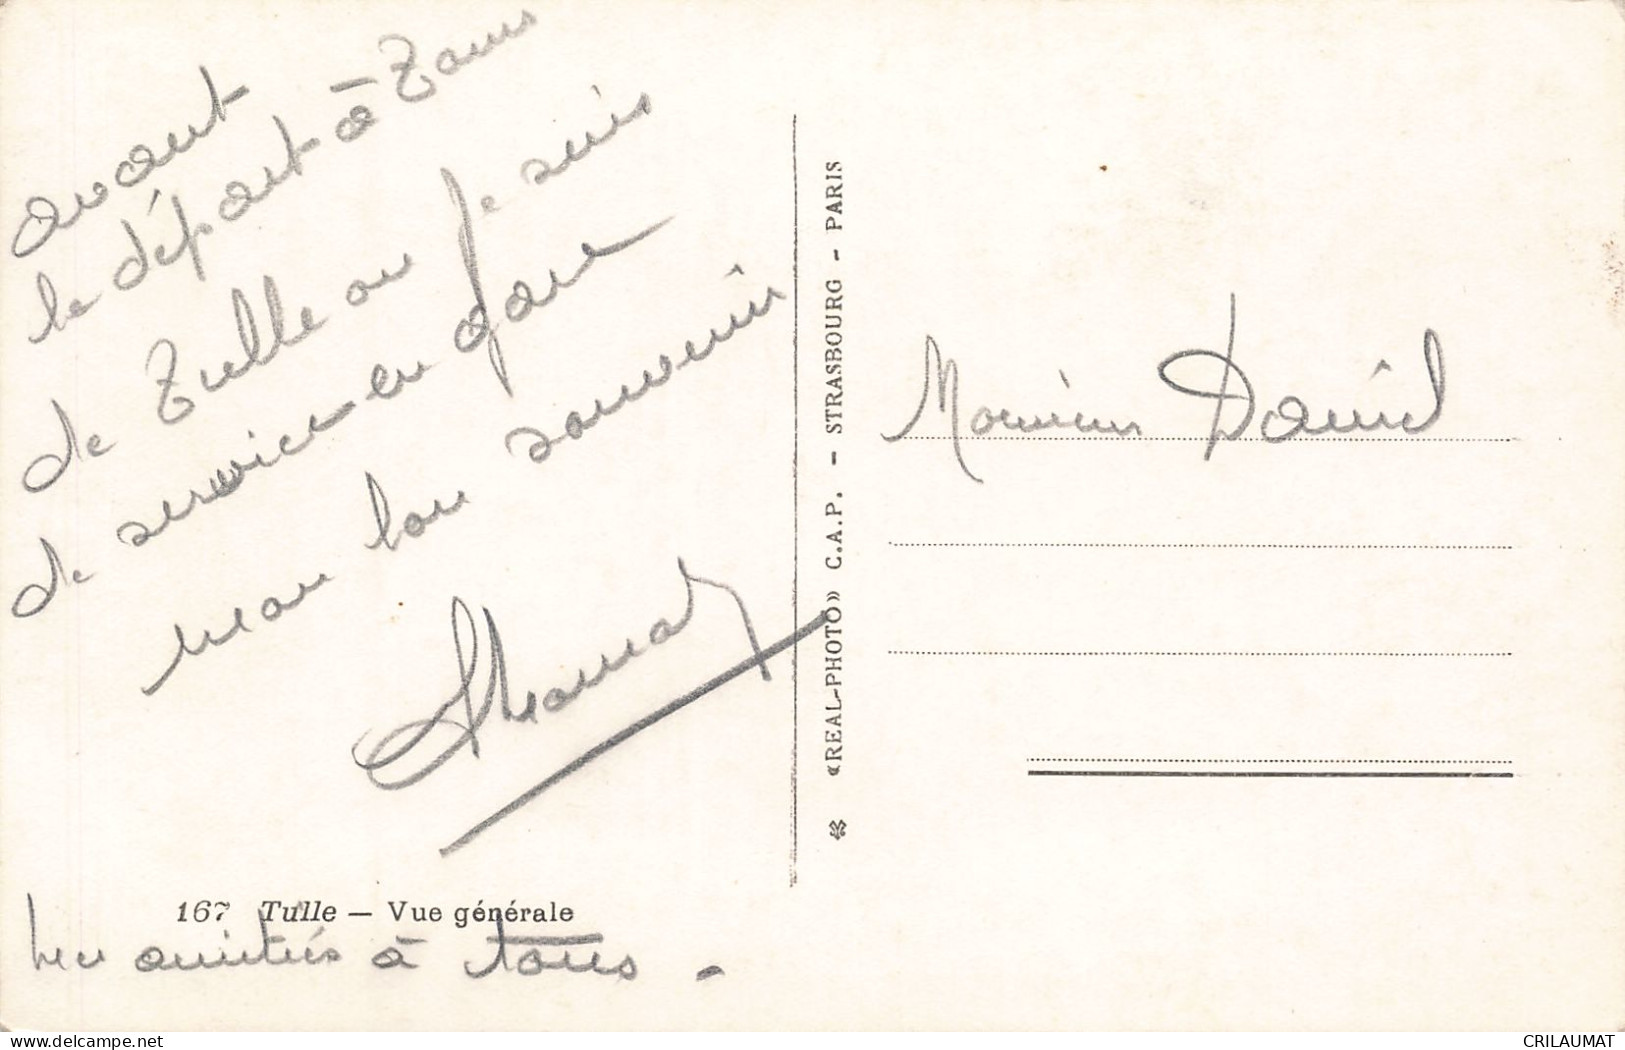 avant
le départ à tous
de Tulle ou je suis
de service en gare
mon bon souvenir
167 Tulle — Vue générale
amitiés à tous -
«REAL-PHOTO» C.A.P. - STRASBOURG - PARIS
Monsieur David
CRILAUMAT